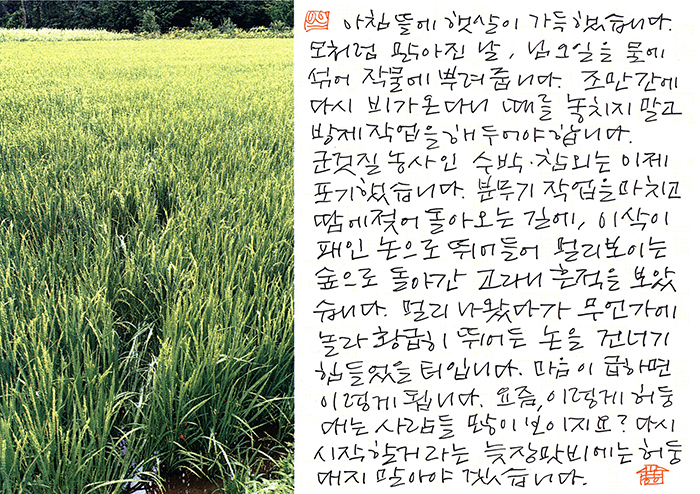 아침 뜰에 햇살이 가득했습니다.
모처럼 맑아진 날, 님오일을 물에
섞어 작물에 뿌려 줍니다. 조만간에
다시 비가 온다니 때를 놓치지 말고
방제 작업을 해 두어야 합니다.
군것질 농사인 수박·참외는 이제
포기했습니다. 분무기 작업을 마치고
땀에 젖어 돌아오는 길에, 이삭이
패인 논으로 뛰어들어 멀리보이는
숲으로 돌아간 고라니 흔적을 보았
습니다. 멀리 나왔다가 무언가에
놀라 황급히 뛰어든 논을 건너기
힘들었을 터입니다. 마음이 급하면
이렇게 됩니다. 요즘, 이렇게 허둥
대는 사람들 많이 보이지요? 다시
시작할거라는 늦장맛비에는 허둥
대지 말아야 겠습니다.